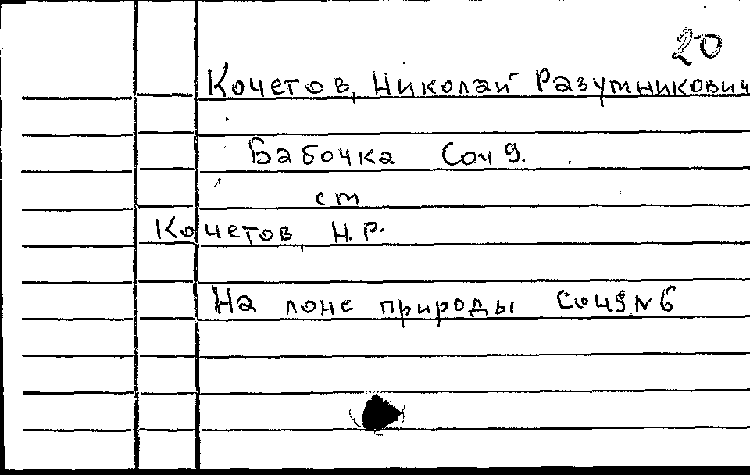 20
Кочетов, Николай Разумникович
Бабочка Соч 9.
ст
Кочетов Н.Р.
На лоне природы Соч9 N6